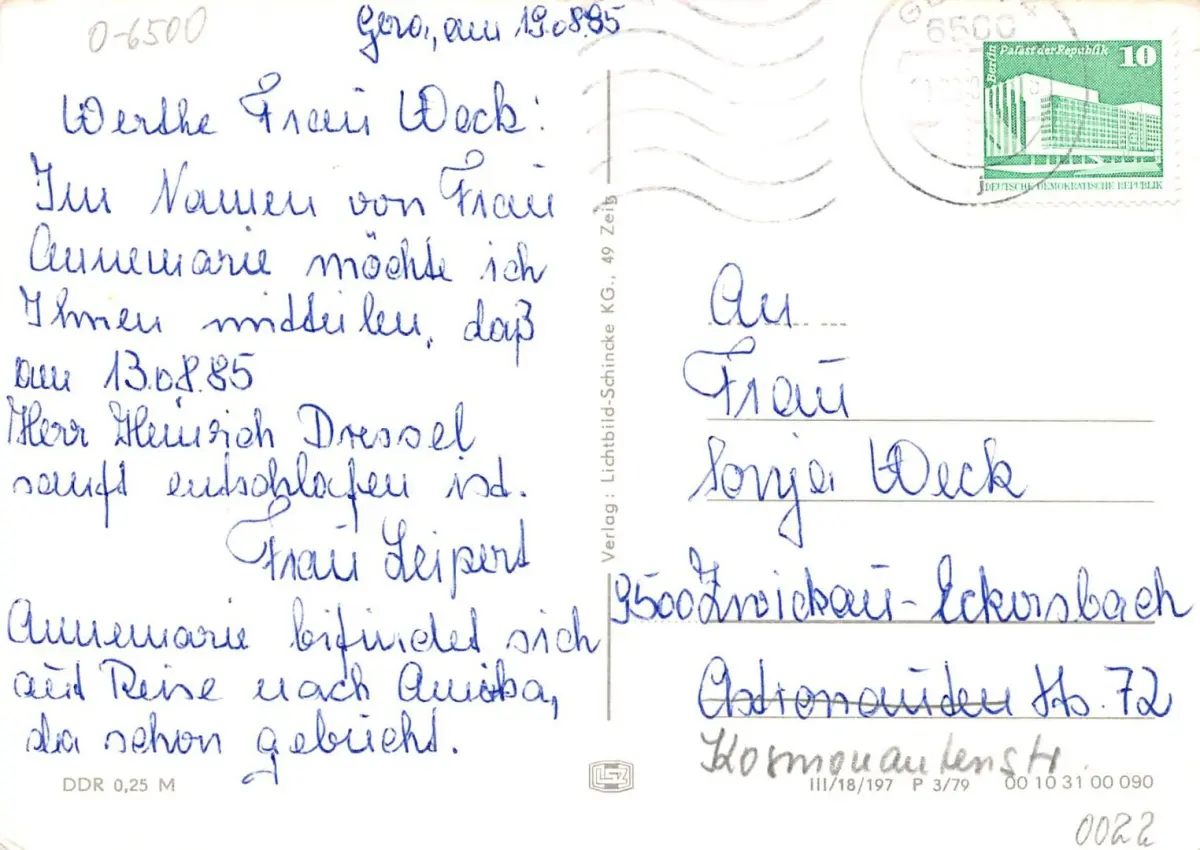 0-6500
Gera, am 19.08.85
Werthe Frau Weck:
Im Namen von Frau
Annemarie möchte ich
Ihnen mitteilen, daß
am 13.08.85
Herr Heinrich Dressel
sanft entschlafen ist.
Frau Leipert
Annemarie bifindet sich
auf Reise nach
da schon gebucht.
DDR 0,25 M
Verlag: Lichtbild-Schincke KG., 49 Zeitz
6500
Berlin Palast der Republik 10
DEUTSCHE DEMOKRATISCHE REPUBLIK
An
Frau
Sonja Weck
9500 Zwickau-Eckersbach
Astronauten Str. 72
Kosmonautenstr.
III/18/197 P 3/79 00 10 31 00 090
0022